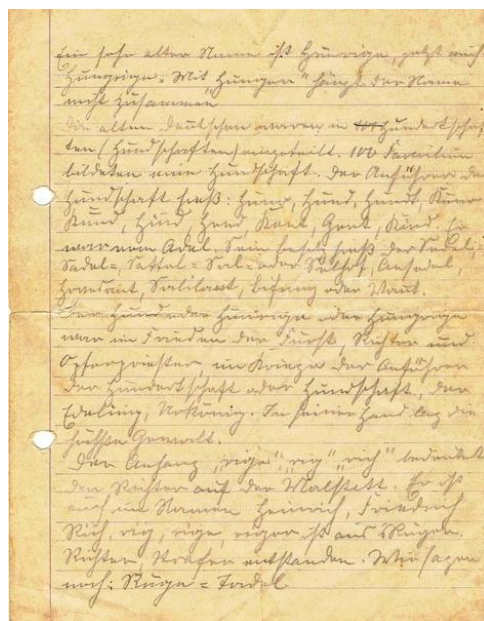 Ein sehr alter Name ist Hunrige, jetzt auch
Hungrige. Mit "Hunger" hängt der Name
nicht zusammen
Die alten Deutschen waren in Hundertschaf
ten (Hundschaften) eingeteilt. 100 Familien
bildeten eine Hundschaft. Der Anführer der
Hundschaft hieß: Hunn, Hund, Hundt,
Kund, Hind, Hend, Kent, Gent, Kind. Er
war vom Adel. Sein Besitz hieß der Sedel-,
Sadel-, Sattel- Sal- oder Sülhof, Ansedel,
Bifang oder
Der Hund oder Hunrige oder Hungrige
war im Frieden der Fürst, Richter und
Opferpriester, im Kriege der Anführer
der Hundertschaft oder Hundschaft, der
Edeling, Urkönig. In seiner Hand lag die
höchste Gewalt.
Der Anhang "rige" "rig" "rich" bedeutet
den Richter auf der Malstatt. Er ist
auch im Namen Heinrich, Friedrich
Rich, rig, rige, ist aus
Richter, entstanden. Wir sagen
noch: Rüge = Tadel